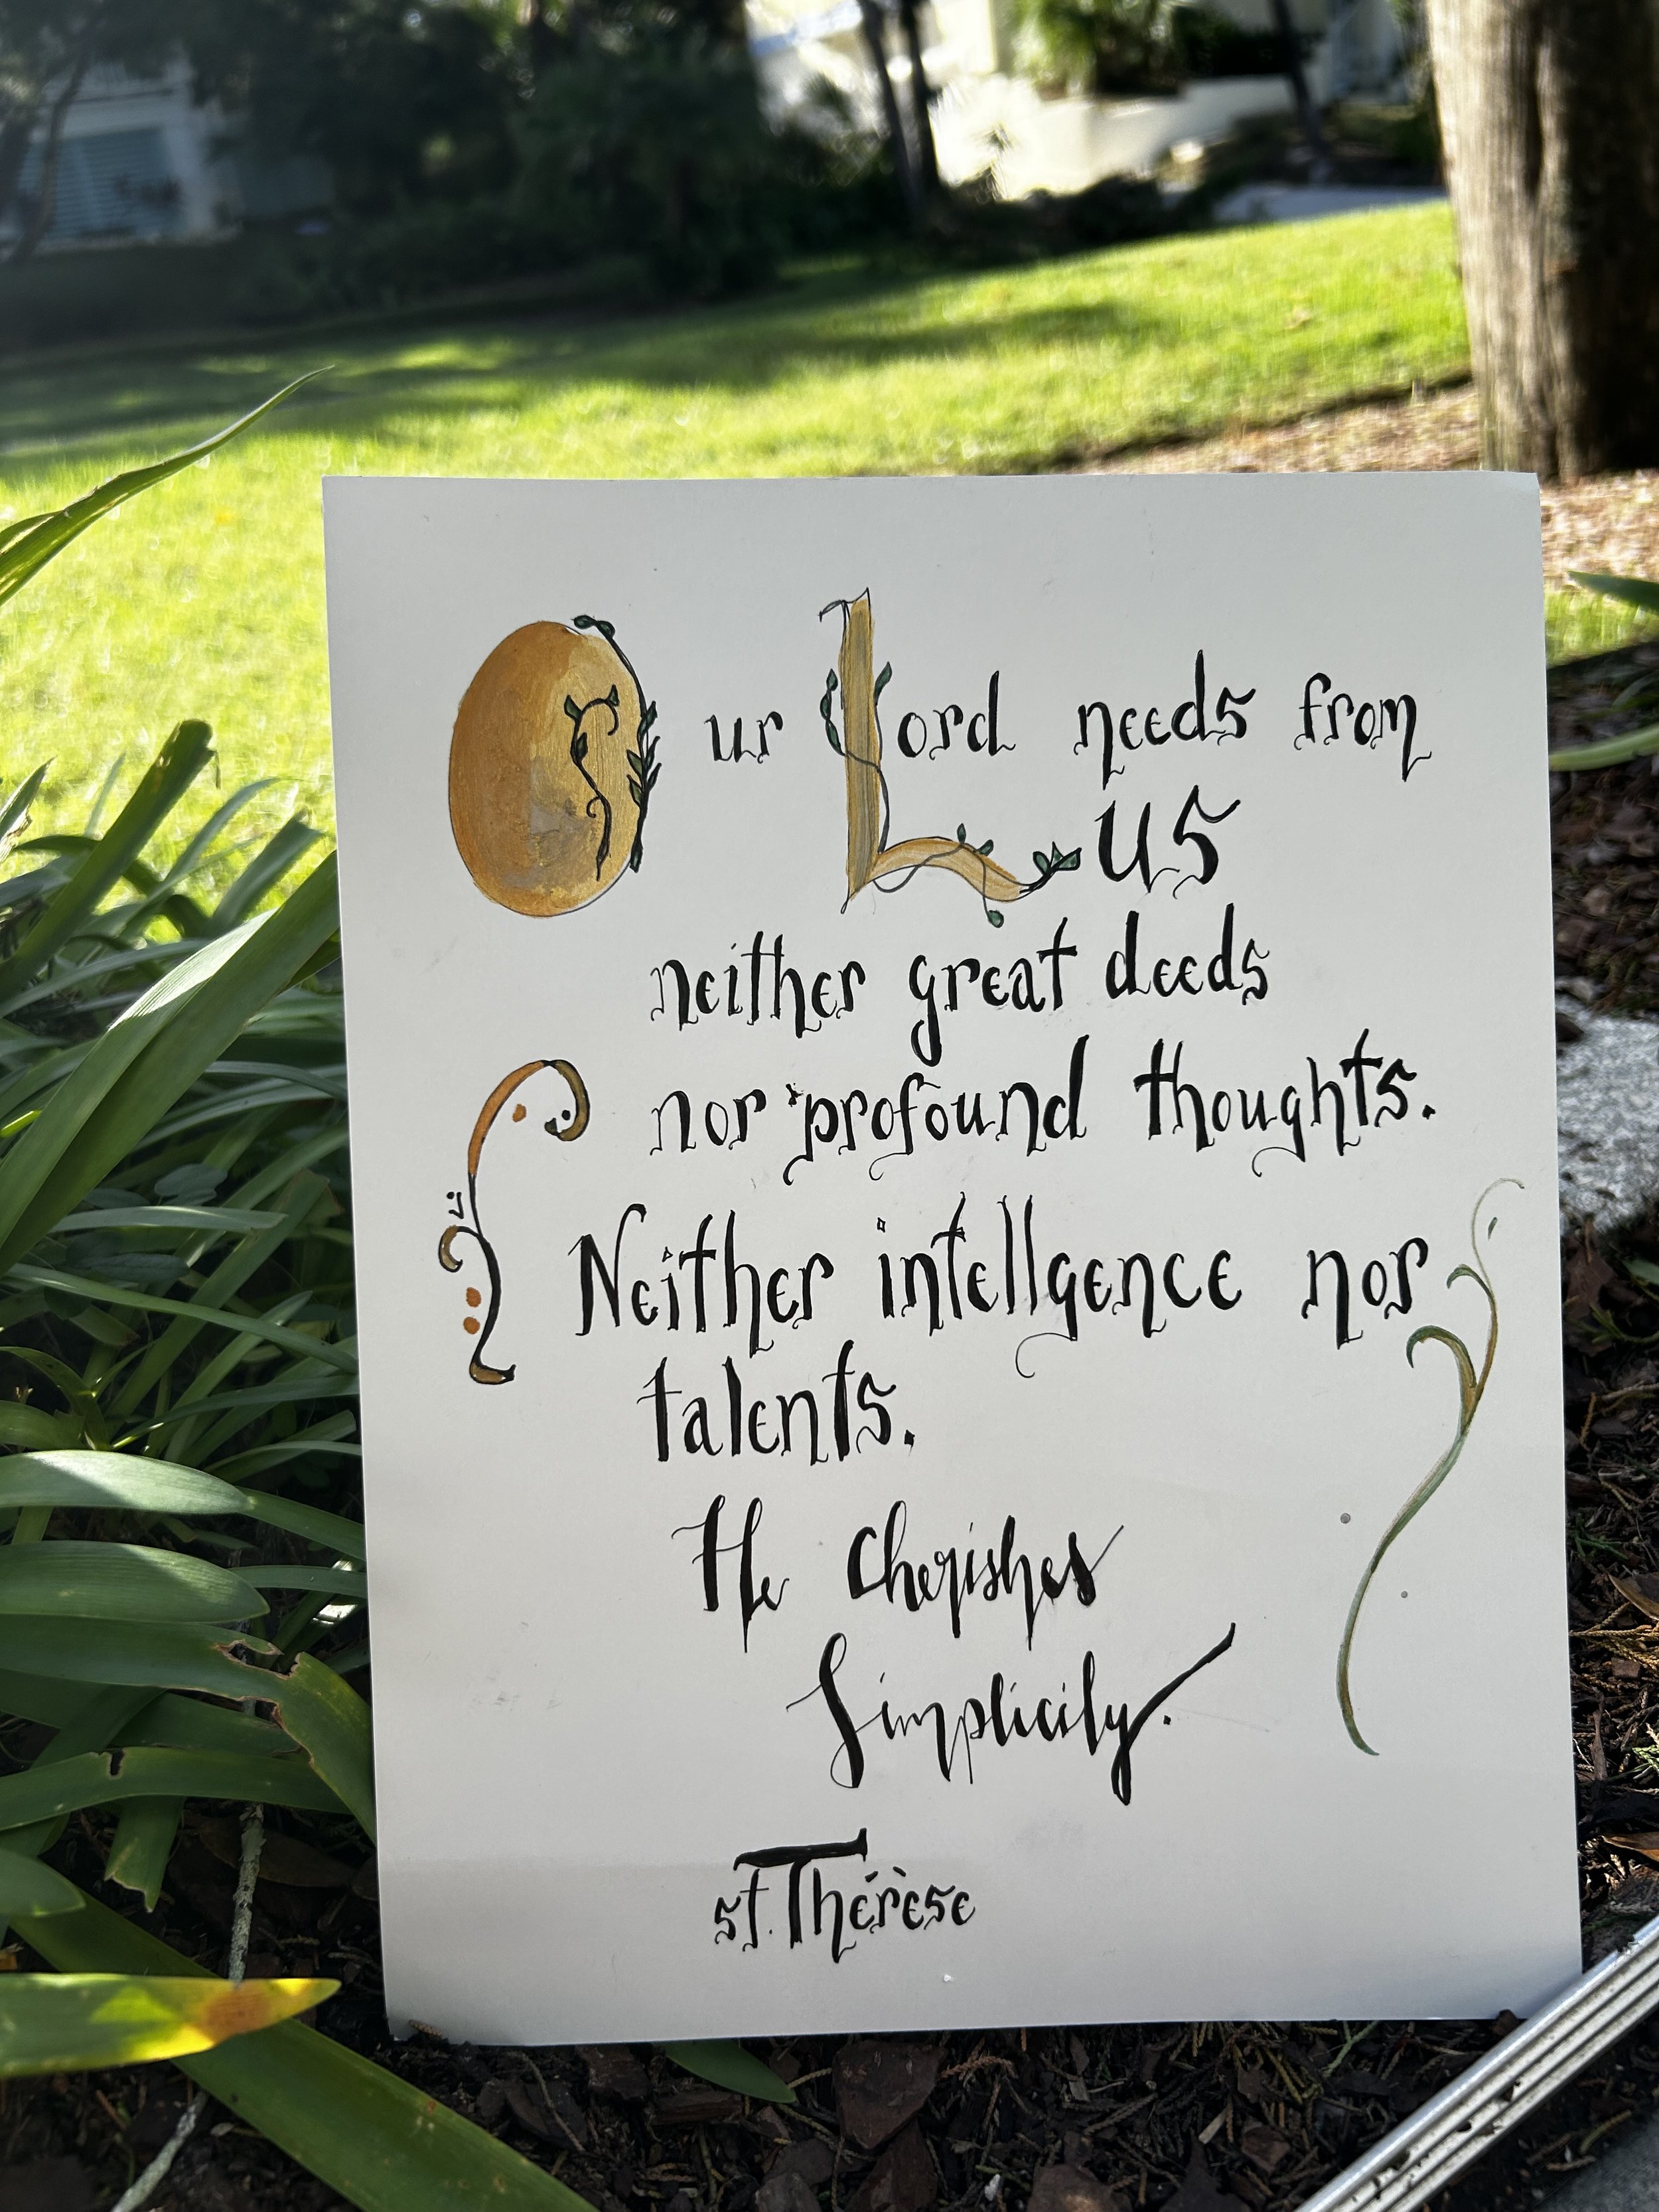 Our Lord needs from
us
neither great deeds
nor profound thoughts.
Neither intellgence nor
talents.
He Cherishes
Simplicity.
st. Thérèse